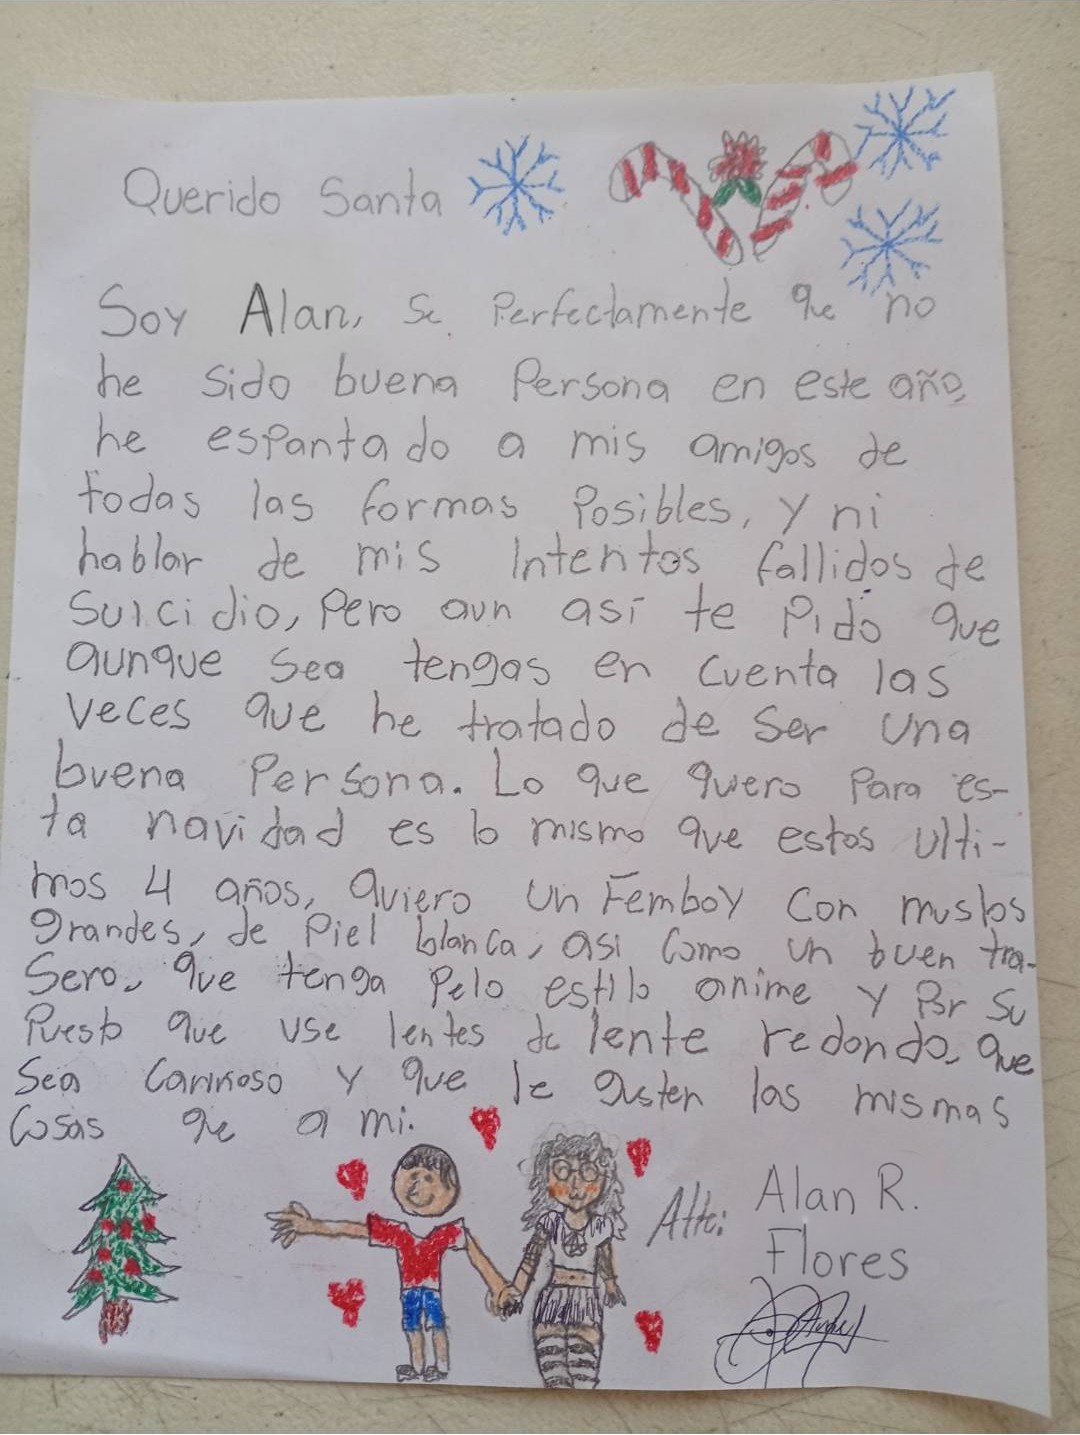 Querido Santa
Soy Alan, Se Perfectamente que no
he sido buena Persona en este año,
he espantado a mis amigos de
todas las formas Posibles, y ni
hablar de mis Intentos fallidos de
Suicidio, Pero aun así te Pido que
aunque sea tengas en cuenta las
veces que he tratado de ser una
buena Persona. Lo que quero Para es-
ta navidad es lo mismo que estos ulti-
mos 4 años, quiero un Femboy con muslos
grandes, de Piel blanca, asi como un buen tra-
sero, que tenga Pelo estilo anime y Por Su
Puesto que use lentes de lente redondo, que
Sea Carinoso y que le gusten las mismas
Cosas que a mi.
Atte: Alan R.
Flores